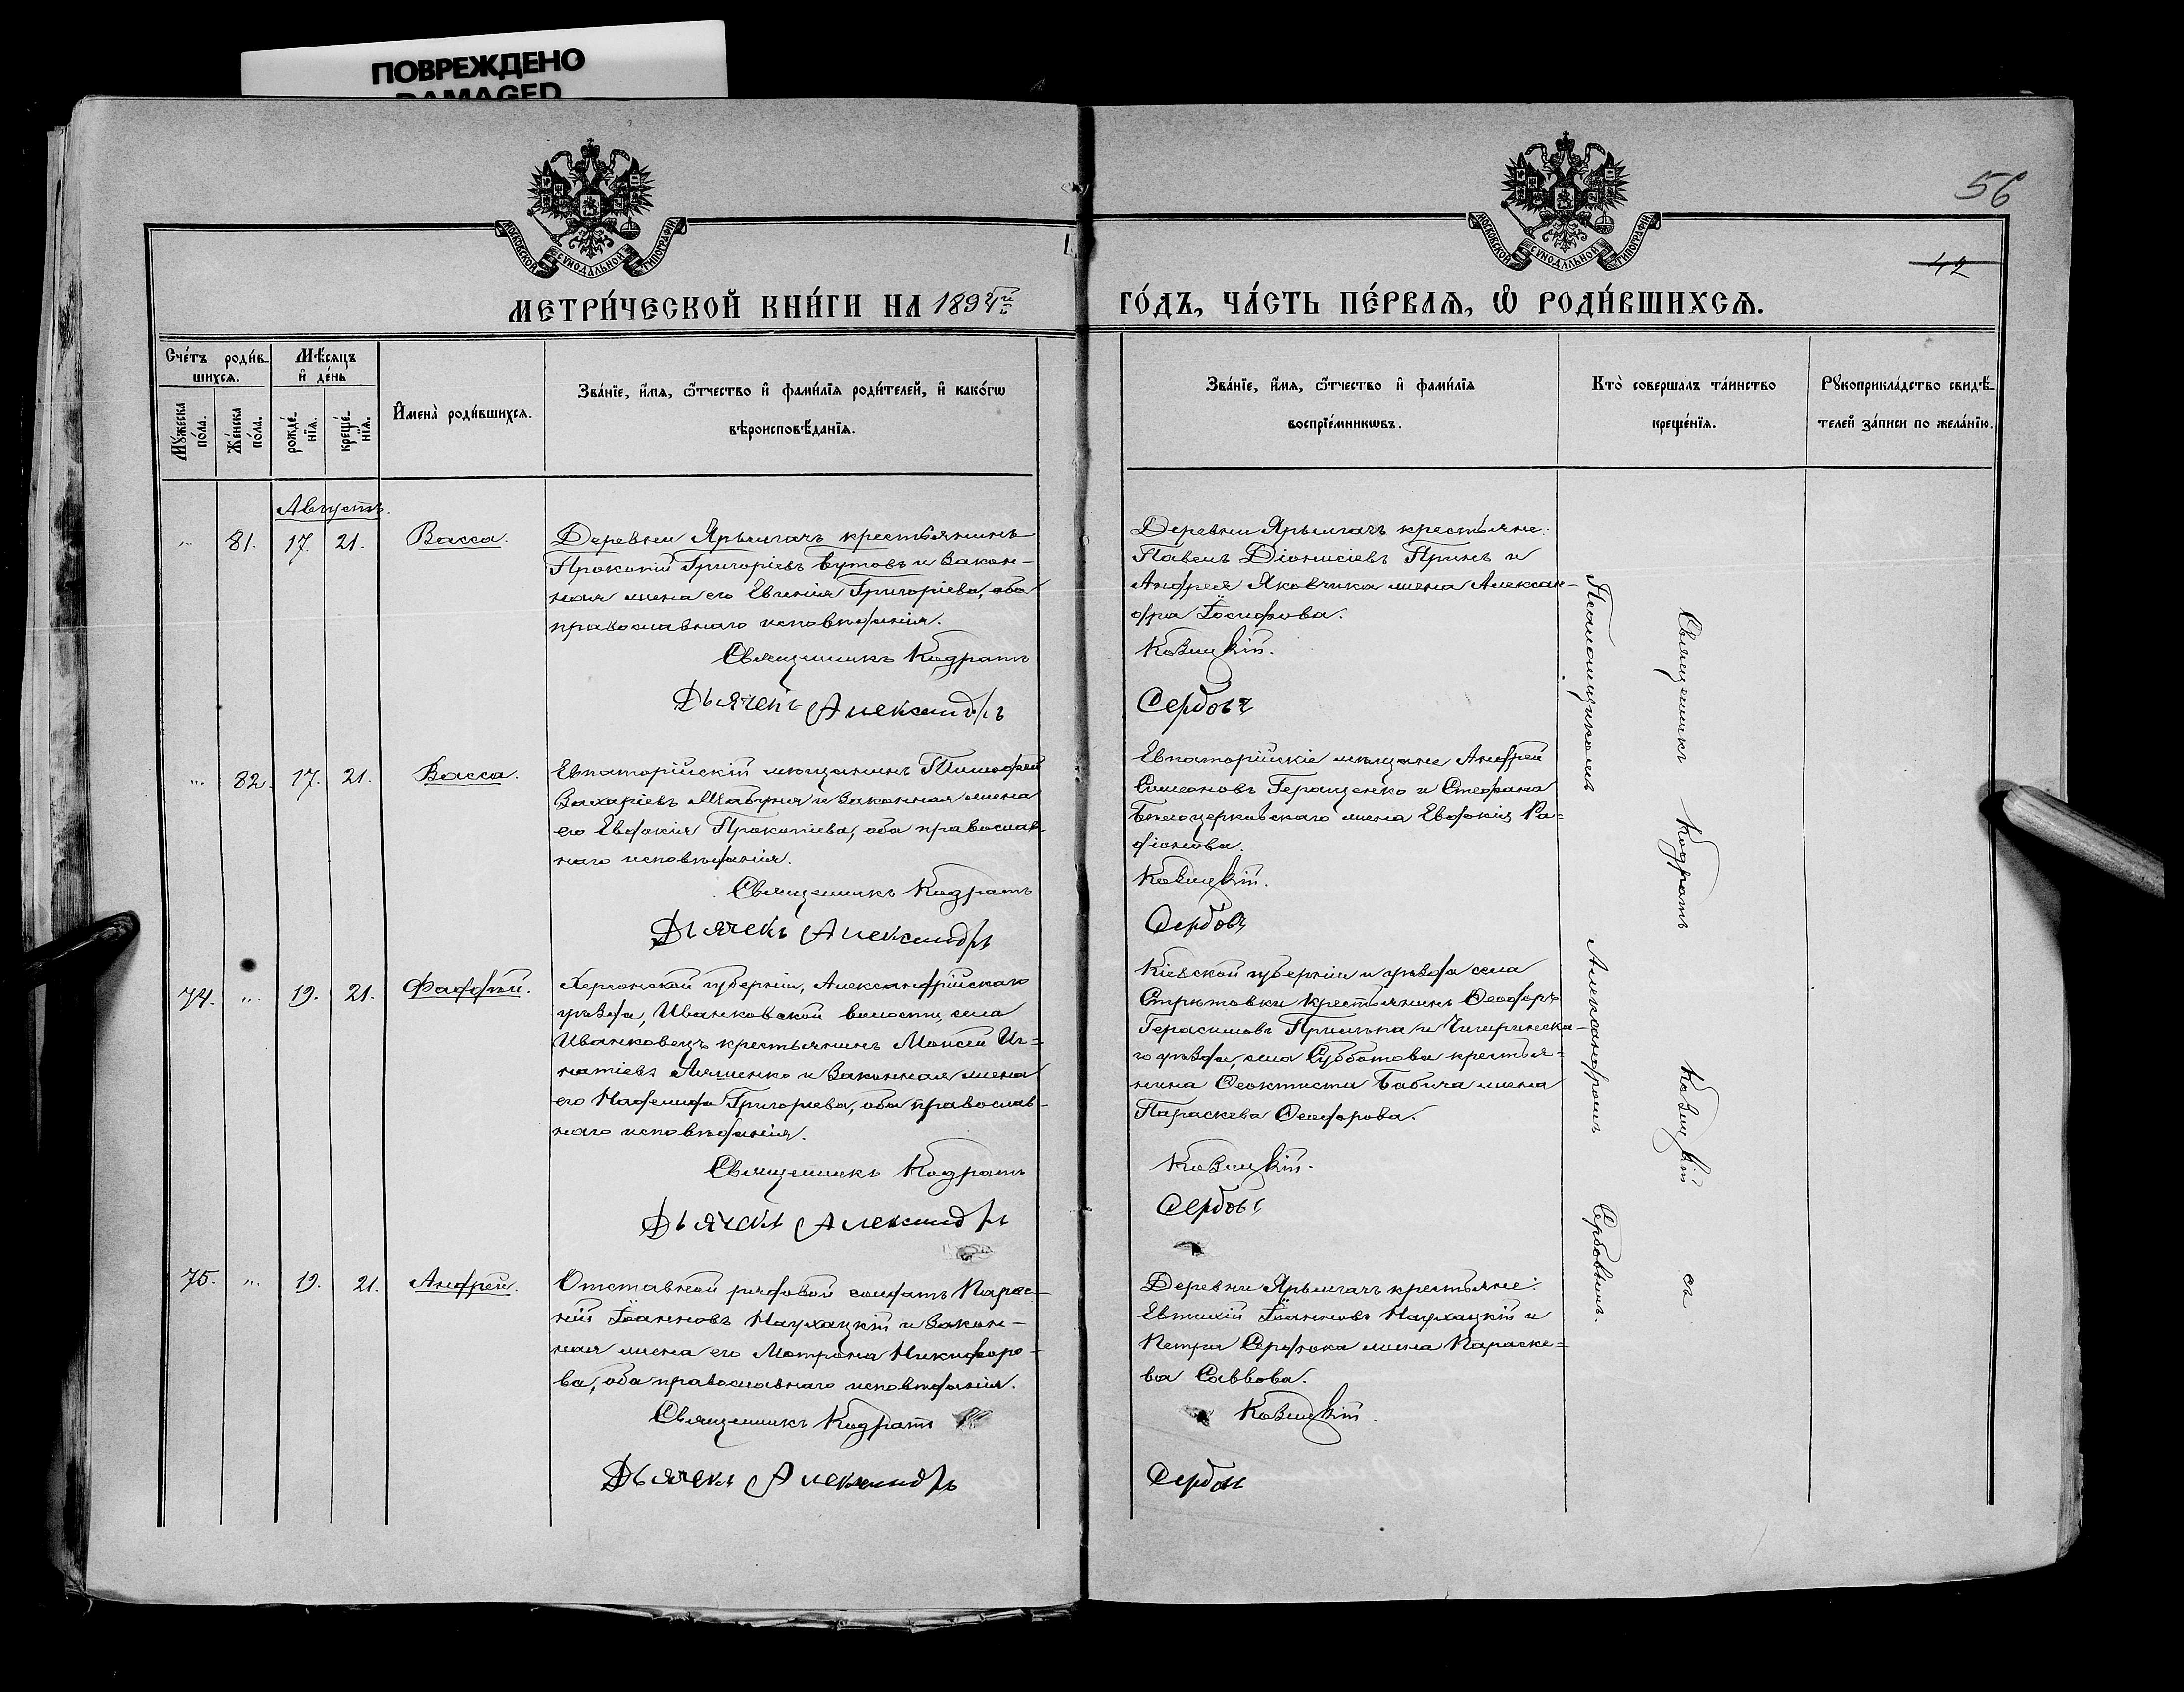 ПОВРЕЖДЕНО
DAMAGED
56
42
МОСКОВСКОЙ СУНОДАЛЬНОЙ ТИПОГРАФІИ
МОСКОВСКОЙ СУНОДАЛЬНОЙ ТИПОГРАФІИ
МЕТРИ́ЧЕСКОЙ КНИ́ГИ НА 1894й
ГО́ДЪ, ЧА́СТЬ ПЕ́РВАѦ, Ѡ҆ РОДИ́ВШИХСѦ.
Сче́тъ роди́в-
шихсѧ.
Мѣ́сѧцъ
и҆ де́нь
Мꙋ́жеска по́ла.
Же́нска по́ла.
рожде́-
нїѧ.
креще́-
нїѧ.
И҆мена̀ роди́вшихсѧ.
Зва́нїе, и҆́мѧ, ѻ҆́тчество и҆ фами́лїѧ роди́телей, и҆ како́гѡ
вѣроисповѣ́данїѧ.
Зва́нїе, и҆́мѧ, ѻ҆́тчество и҆ фами́лїѧ
воспрїе́мникѡвъ.
Кто̀ соверша́лъ та́инство
креще́нїѧ.
Рꙋкоприкла́дство свидѣ́-
телей за́писи по жела́нїю.
Августъ.
" 81. 17. 21. Васса.
Деревни Ярылгачъ крестьянинъ
Прокопій Григоріевъ Бутовъ и закон-
ная жена его Евгенія Григоріева, оба
православнаго исповѣданія.
Священникъ Кодратъ
Дьячекъ Александръ
Деревни Ярылгачъ крестьяне:
Павелъ Діонисіевъ Принь и
Андрея Яковчика жена Алексан-
дра Іосифова.
Козицкій.
Сербовъ
" 82. 17. 21. Васса.
Евпаторійскій мѣщанинъ Тимофей
Захаріевъ и законная жена
его Евдокія Прокопіева, оба православ-
наго исповѣданія.
Священникъ Кодратъ
Дьячекъ Александръ
Евпаторійскіе мѣщане Андрей
Симеоновъ Геращенко и Стефана
Бѣлоцерковскаго жена Евдокія Ра-
діонова.
Козицкій.
Сербовъ
74. " 19. 21. Фаддѣй.
Херсонской губерніи, Александрійскаго
уѣзда, Иванковской волости, села
Иванковецъ крестьянинъ Моисей Иг-
натіевъ Ляшенко и законная жена
его Надежда Григорьева, оба православ-
наго исповѣданія.
Священникъ Кодратъ
Дьячекъ Александръ
Кіевской губерніи и уѣзда села
Стрѣтовки крестьянинъ Ѳеодоръ
Герасимовъ и Чигиринска-
го уѣзда, села Субботова крестья-
нина Ѳеоктиста Бабича жена
Параскева Ѳеодорова.
Козицкій.
Сербовъ
75. " 19. 21. Андрей.
Отставной рядовой солдатъ Парѳе-
ній Іоанновъ Наухацкій и закон-
ная жена его Мотрона Никифоро-
ва, оба православнаго исповѣданія.
Священникъ Кодратъ
Дьячекъ Александръ
Деревни Ярылгачъ крестьяне:
Евтихій Іоанновъ Наухацкій и
Петра Сердюка жена Параске-
ва Саввова.
Козицкій.
Сербовъ
Священникъ Кодратъ Козицкій съ
Псаломщикомъ Александромъ Сербовымъ.